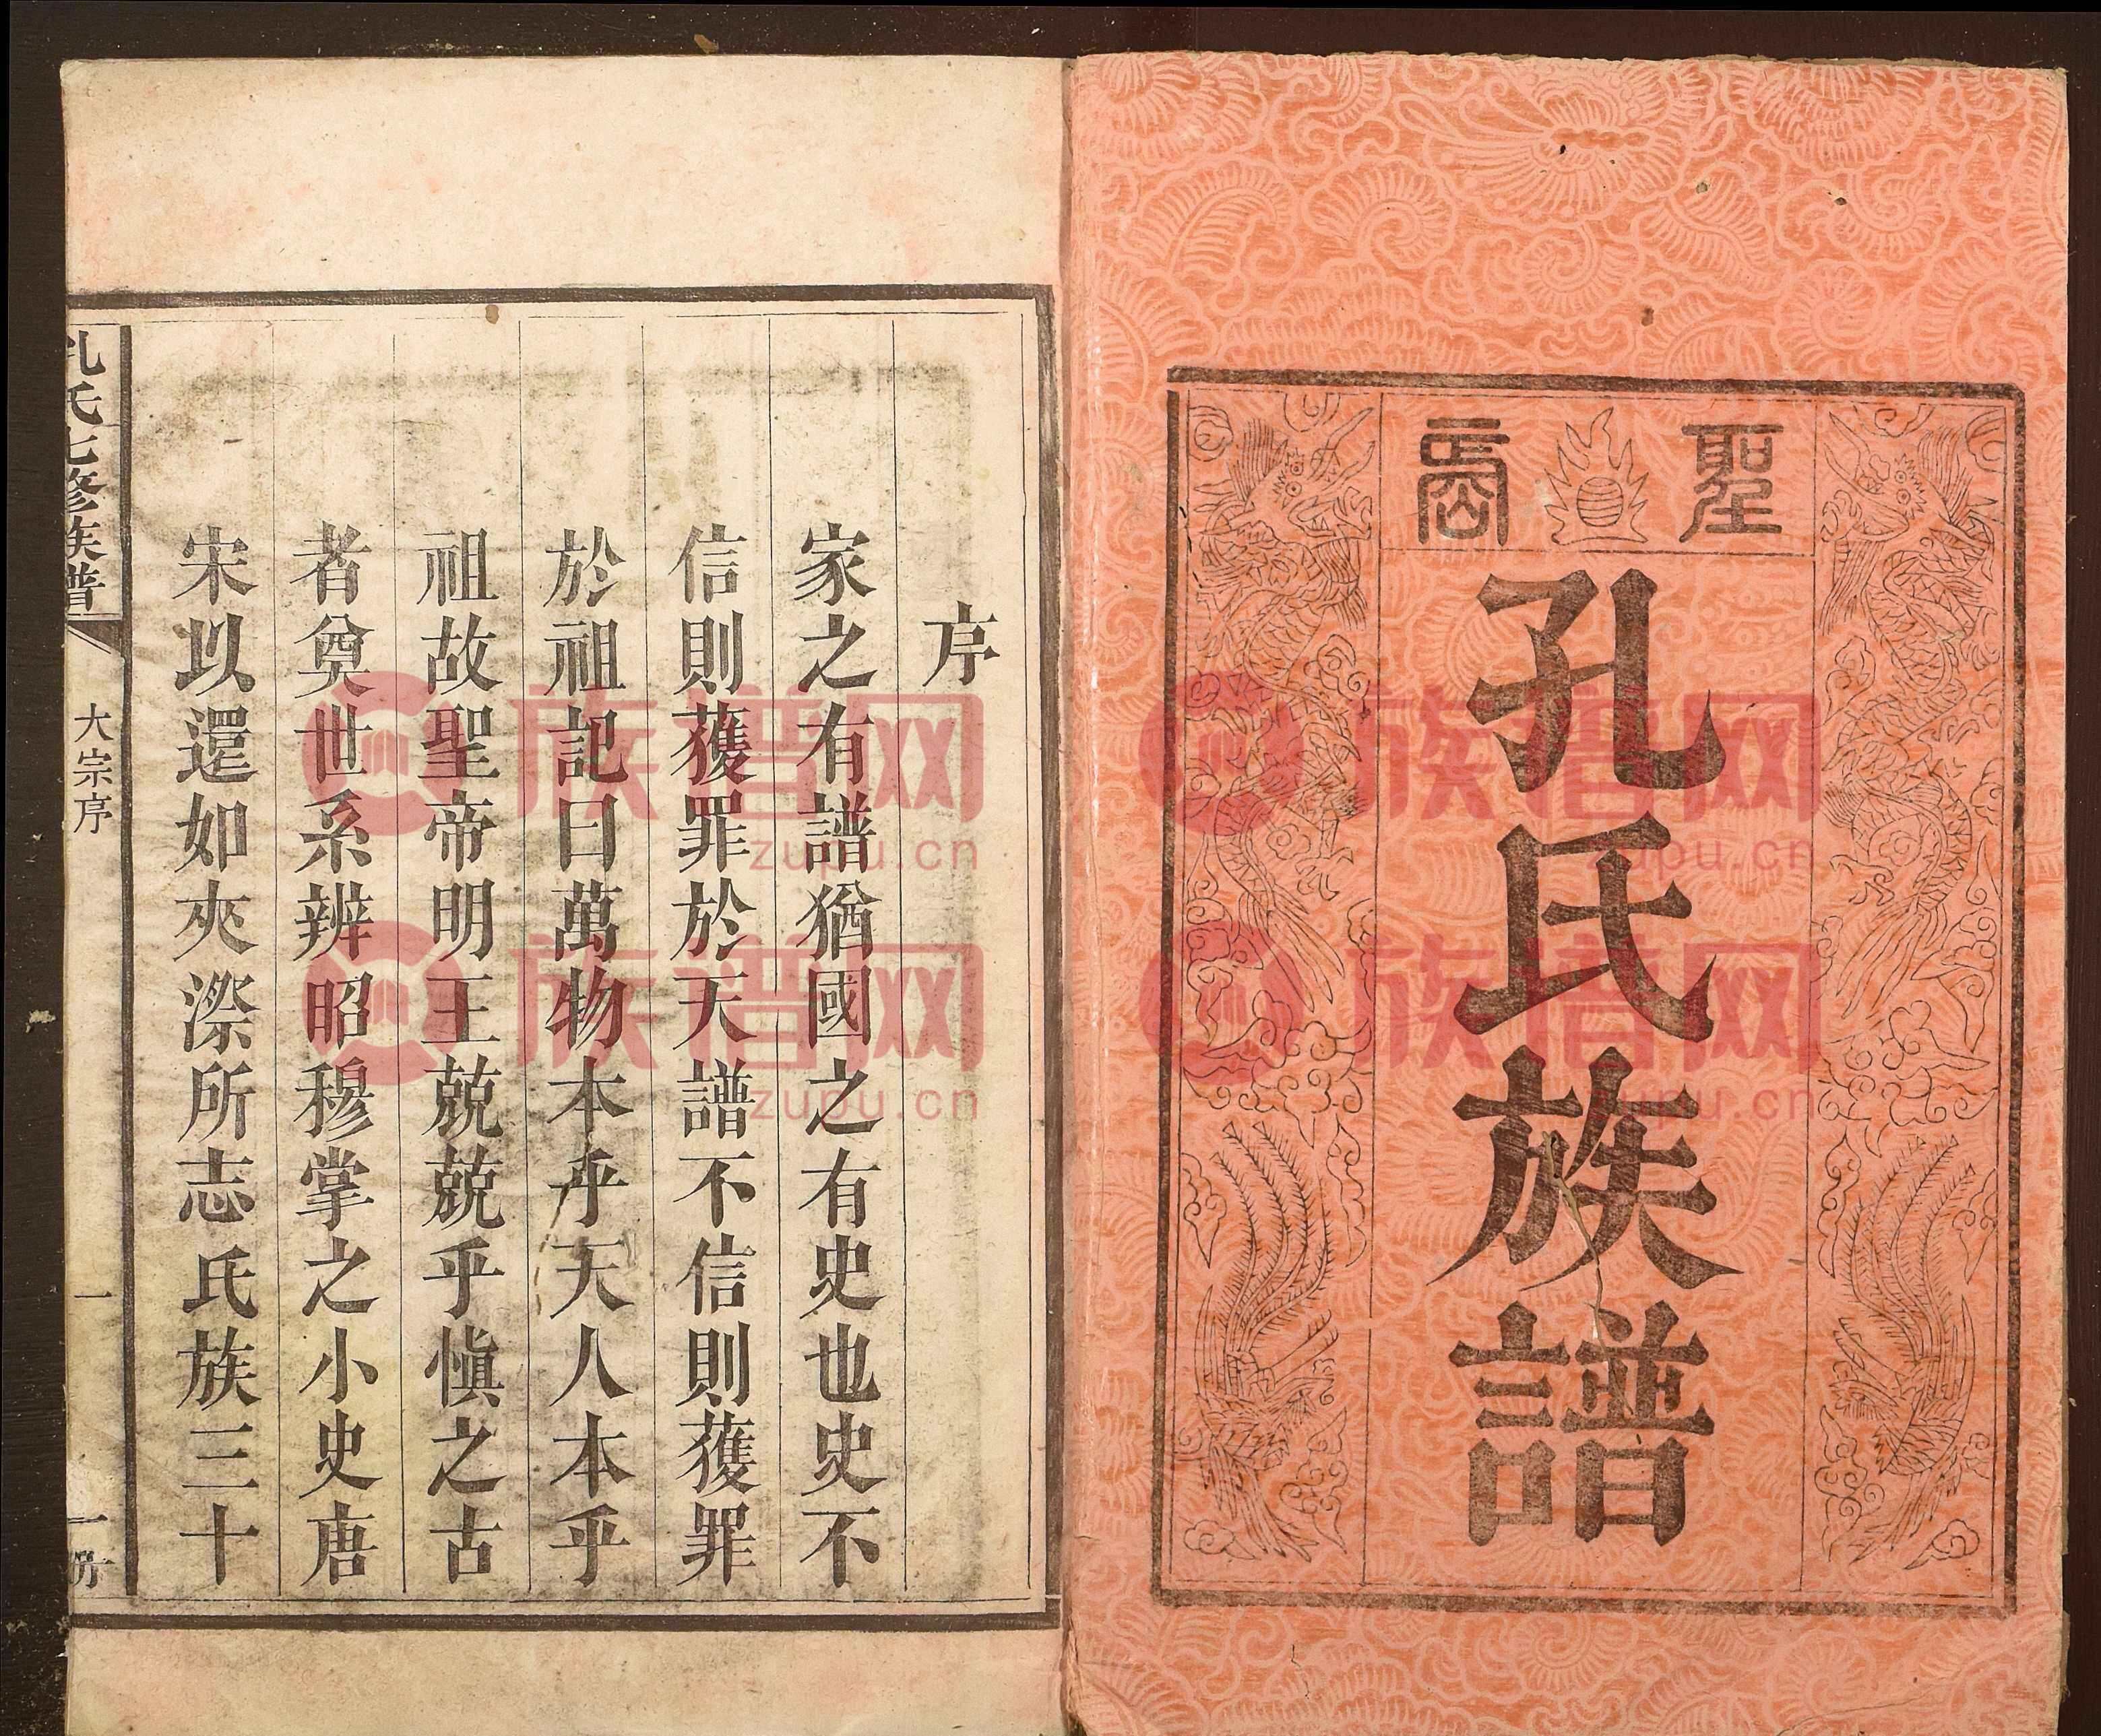 聖裔
孔氏族譜
序
家之有譜猶國之有史也史不
信則獲罪於天譜不信則獲罪
於祖記曰萬物本乎天人本乎
祖故聖帝明王兢兢乎慎之古
者奠世系辨昭穆掌之小史唐
宋以還如夾漈所志氏族三十
孔氏七修族譜
大宗序
一
一房
族谱网
zupu.cn
族谱网
zupu.cn
族谱网
zupu.cn
族谱网
zupu.cn